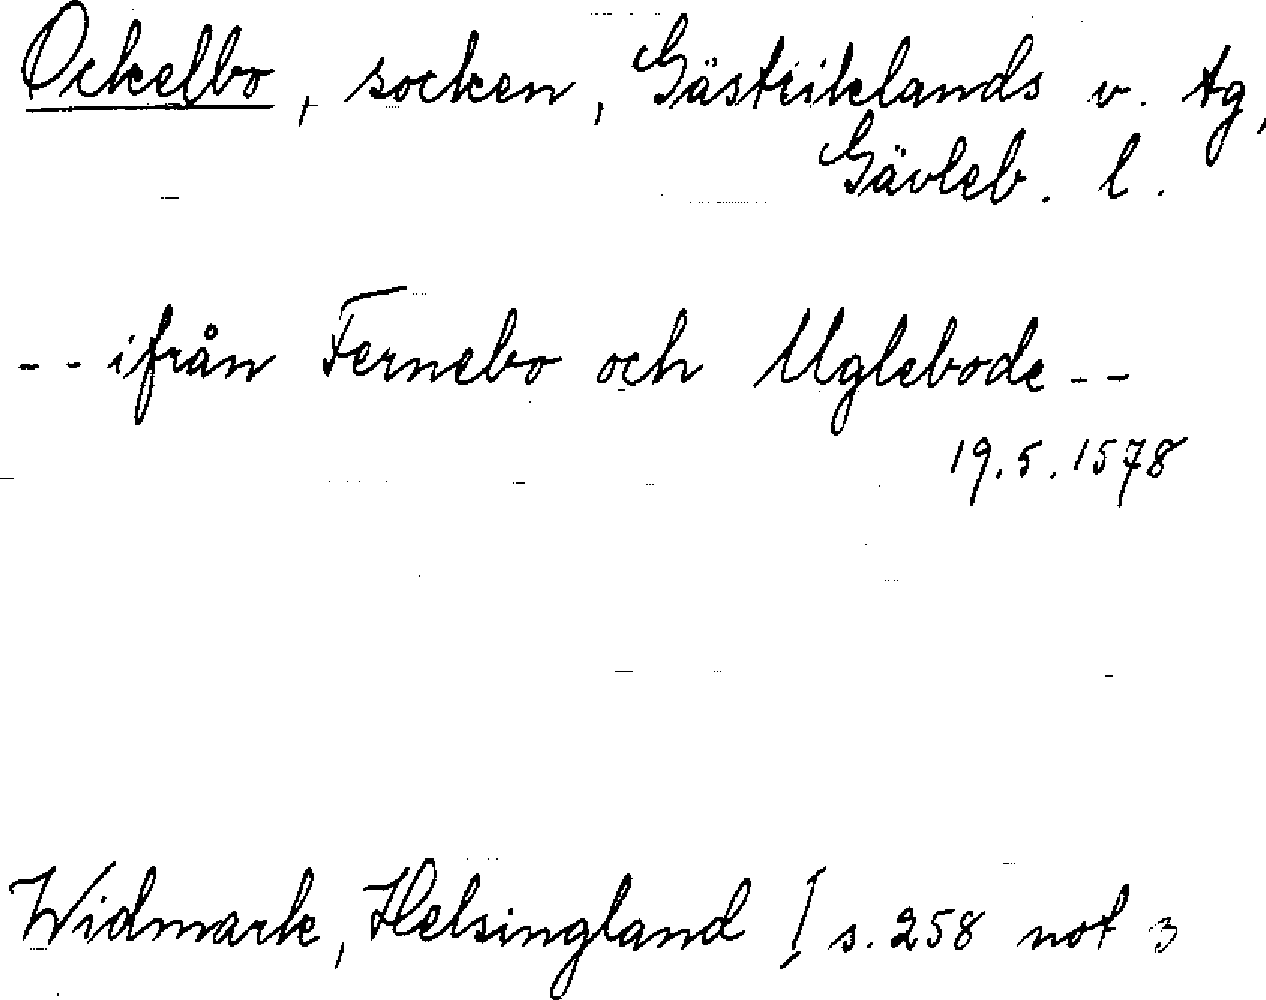 Ockelbo, socken, Gästriklands v. tg,
Gävleb. l.
-- ifrån Fernebo och Uglebode --
19.5.1578
Widmark, Helsingland I s. 258 not 3